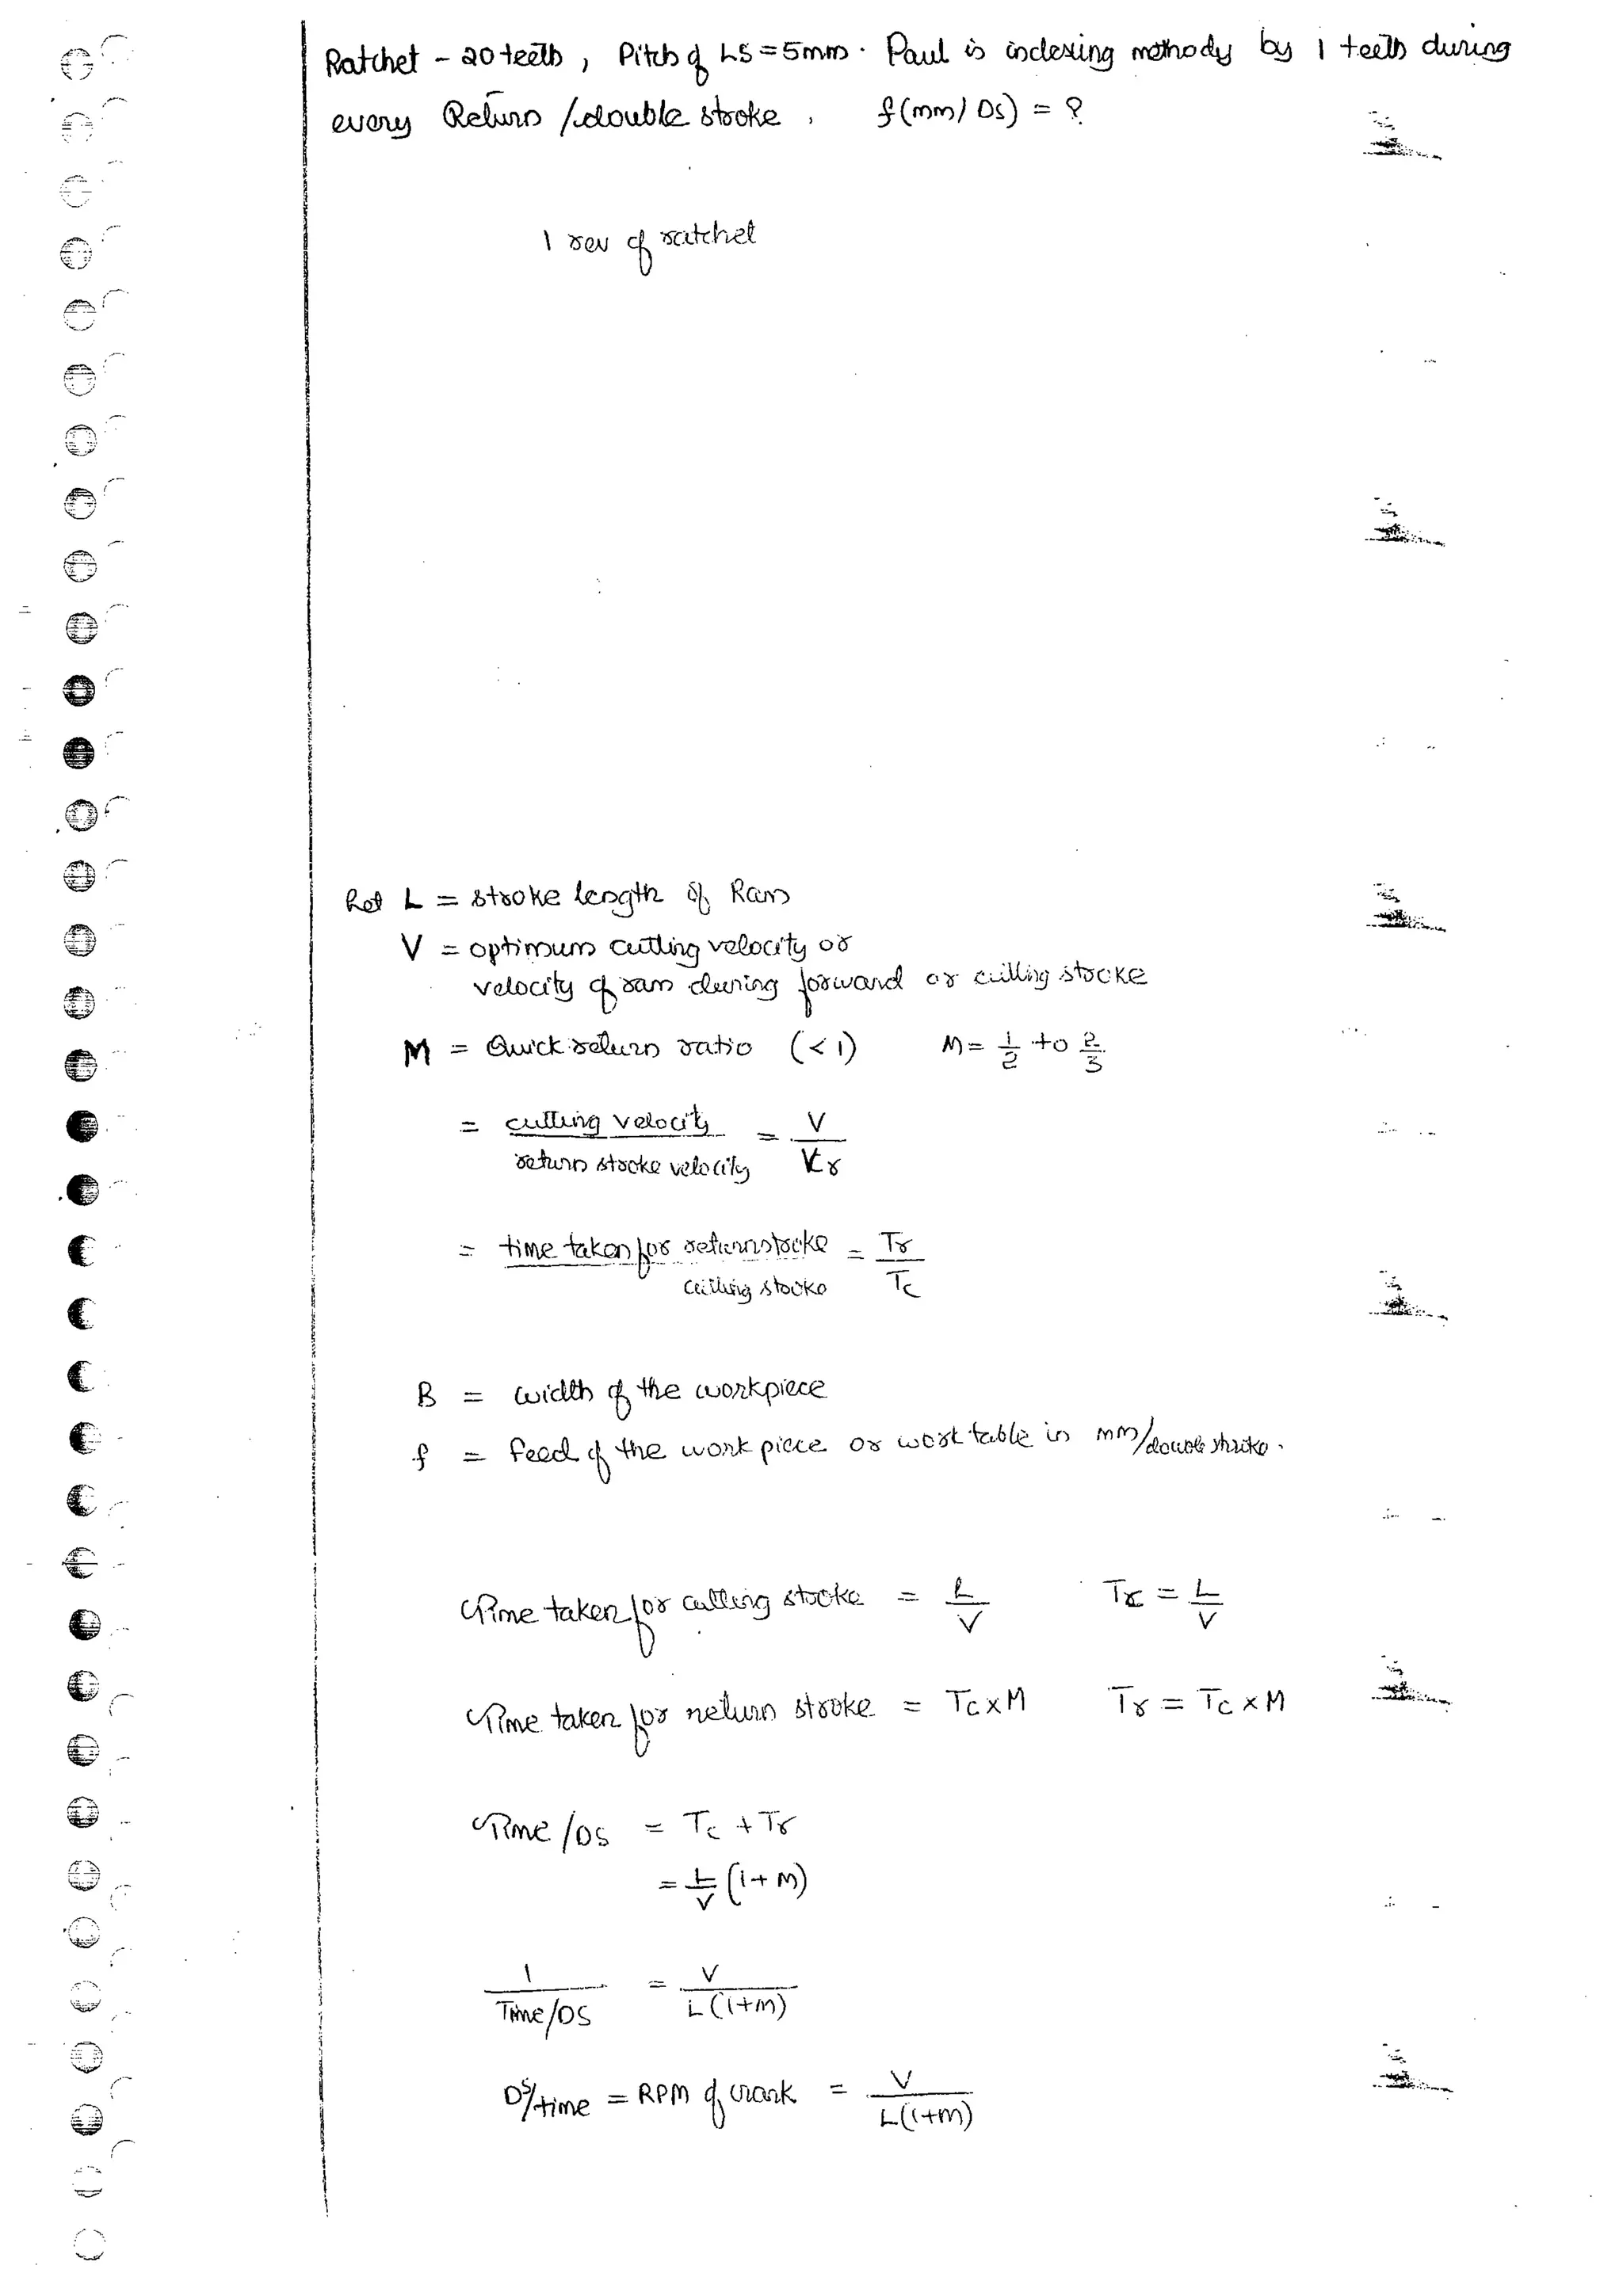 Ratchet - 20 teeth, Pitch of LS = 5mm. Paul is indexing methody by 1 teeth during
every Return /double stroke, f(mm/DS) = ?
1 rev of ratchet
Let L = stroke length of Ram
V = optimum cutting velocity or
velocity of ram during forward or cutting stroke
M = Quick return ratio (<1) M = 1/2 to 2/3
= cutting velocity / return stroke velocity = V / Vr
= time taken for return stroke / cutting stroke = Tr / Tc
B = width of the workpiece
f = feed of the work piece or work table in mm/double stroke.
Time taken for cutting stroke = L/V Tc = L/V
Time taken for return stroke = Tc x M Tr = Tc x M
Time /DS = Tc + Tr
= L/V (1+M)
1 / Time/DS = V / L(1+M)
DS/time = RPM of crank = V / L(1+M)